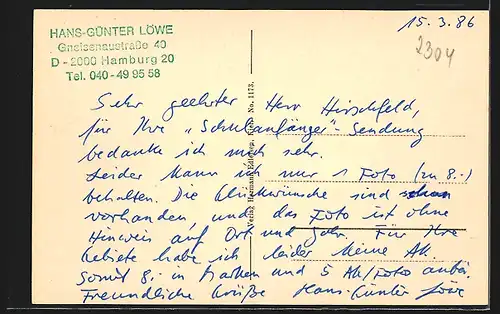 HANS-GÜNTER LÖWE
Gneisenaustraße 40
D-2000 Hamburg 20
Tel. 040-49 95 58
15.3.86
2304
Sehr geehrter Herr Hirschfeld,
für Ihre „Schulanfänger"-Sendung
bedanke ich mich sehr.
Leider kann ich nur 1 Foto (zu 8.-)
behalten. Die Glückwünsche sind schon
vorhanden, und das Foto ist ohne
Hinweis auf Ort und Jahr. Für Ihre
Gebiete habe ich leider keine Ak.
Somit 8.- in Marken und 5 Ak/Foto anbei.
Freundliche Grüße Hans-Günter Löwe
Verlag Hermann
No. 1173.